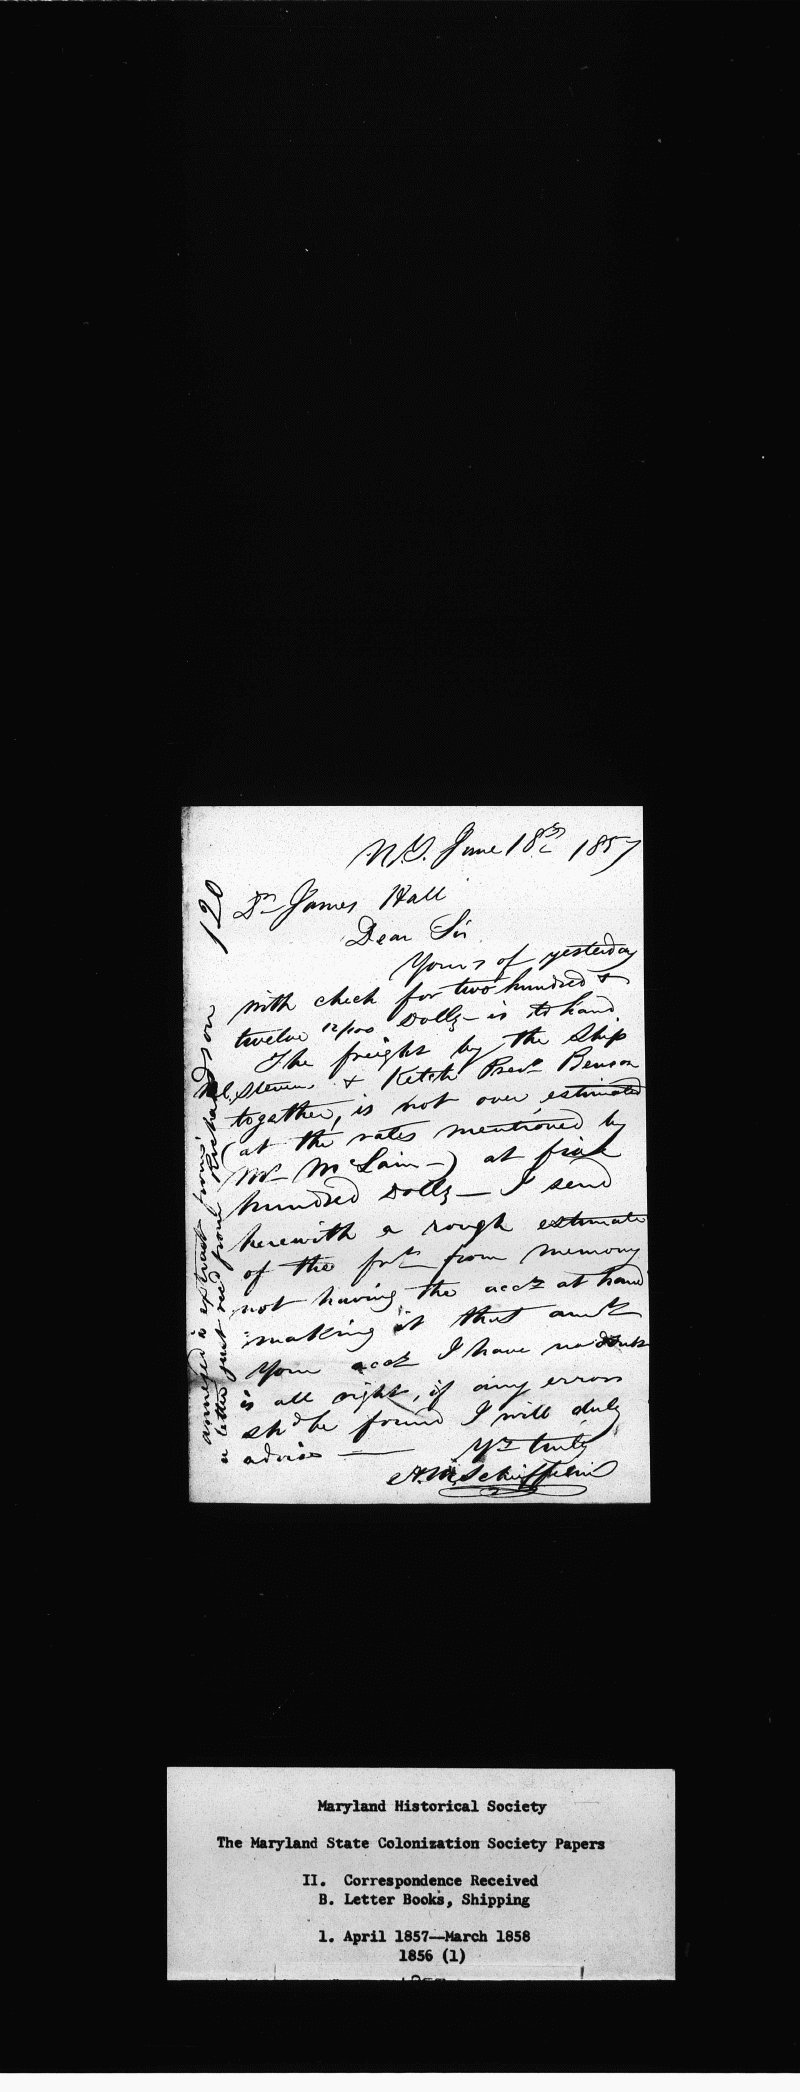 N.Y. June 18th 1857
120
Dr James Hall
Dear Sir
Yours of yesterday
with check for two hundred &
twelve 12/100 Dolls— is to hand.
The freight by the Ship
M.C. Stevens & Ketch Prest Benson
together, is not over estimated
(at the rates mentioned by
Mr McLain—) at
hundred Dolls— I send
herewith a rough estimate
of the frt from memory
not having the acct at hand
making it that amt
Your acct I have no doubt
is all right, if any errors
shd be found I will duly
advise —— Yrs truly
Schieffelin
annexed is extract from
a letter just recd from Richardson
Maryland Historical Society
The Maryland State Colonization Society Papers
II. Correspondence Received
B. Letter Books, Shipping
1. April 1857—March 1858
1856 (1)